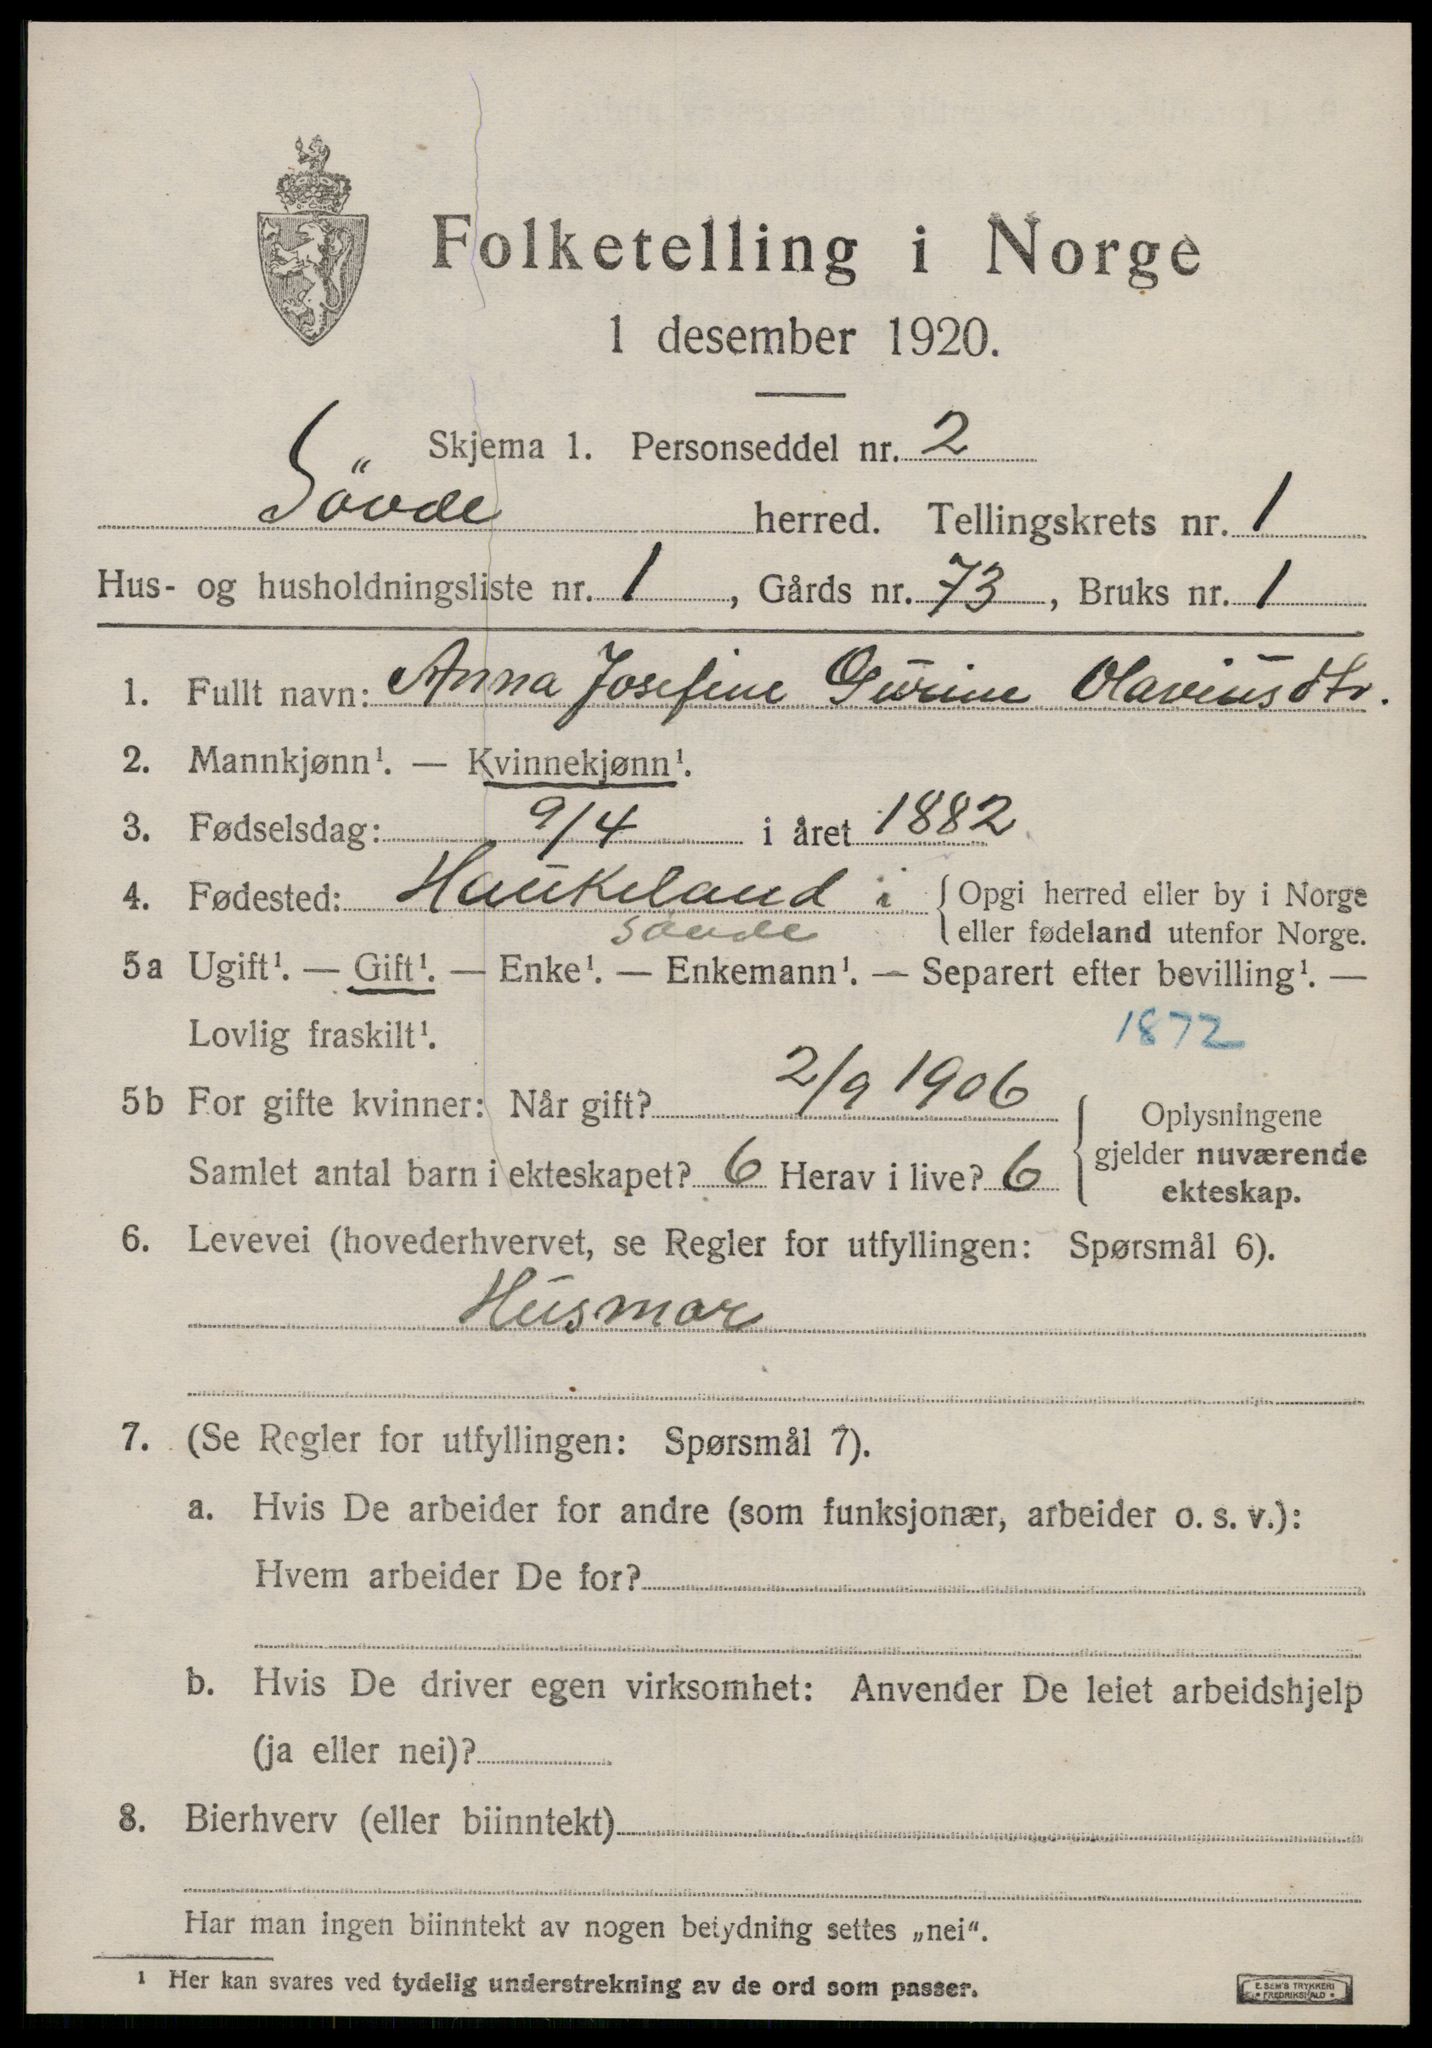 Folketelling i Norge
1 desember 1920.
Skjema 1. Personseddel nr. 2
Sövde herred. Tellingskrets nr. 1
Hus- og husholdningsliste nr. 1, Gårds nr. 73, Bruks nr. 1
1. Fullt navn: Anna Josefine Gurine Olaviusdtr.
2. Mannkjønn¹. — Kvinnekjønn¹.
3. Fødselsdag: 9/4 i året 1882
4. Fødested: Haukeland i { Opgi herred eller by i Norge
Sövde eller fødeland utenfor Norge.
5a Ugift¹. — Gift¹. — Enke¹. — Enkemann¹. — Separert efter bevilling¹. —
Lovlig fraskilt¹. 1872
5b For gifte kvinner: Når gift? 2/9 1906 Oplysningene
Samlet antal barn i ekteskapet? 6 Herav i live? 6 gjelder nuværende
ekteskap.
6. Levevei (hovederhvervet, se Regler for utfyllingen: Spørsmål 6).
Husmor
7. (Se Regler for utfyllingen: Spørsmål 7).
a. Hvis De arbeider for andre (som funksjonær, arbeider o. s. v.):
Hvem arbeider De for?
b. Hvis De driver egen virksomhet: Anvender De leiet arbeidshjelp
(ja eller nei)?
8. Bierhverv (eller biinntekt)
Har man ingen biinntekt av nogen betydning settes „nei“.
¹ Her kan svares ved tydelig understrekning av de ord som passer.
E. SEM'S TRYKKERI
• FREDRIKSHALD •